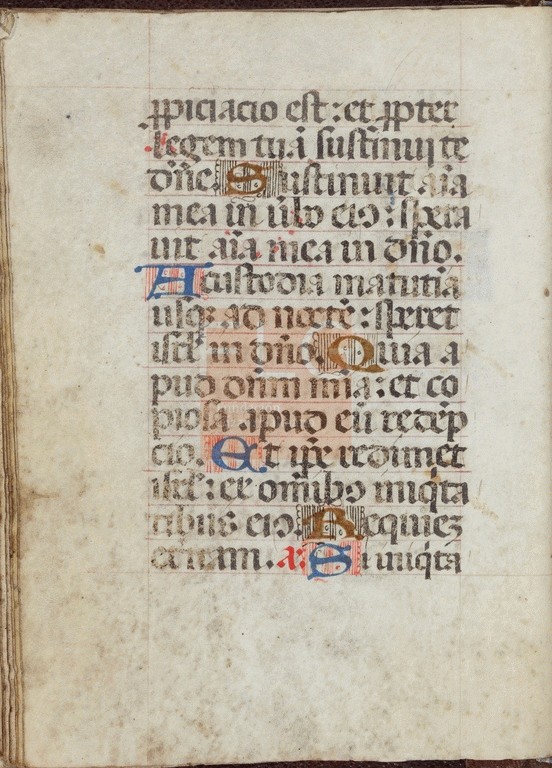 ꝓpiciacio est : et ꝓpter
legem tuā sustinui te
dn̄e. Sustinuit aīa
mea in u̇bo eiꝰ : spera
uit aīa mea in dn̄o.
A custodia matutīa
usq̨ ad noctē : speret
isrl̄ in dn̄o. Quia a
pud dn̄m mīa : et co
piosa apud eū redēp
cio. Et ip̄e redimet
isrl̄ : ex om̄ibꝰ iniq̇ta
tibus eiꝰ. Requiez
eternam. a: Si iniq̇ta